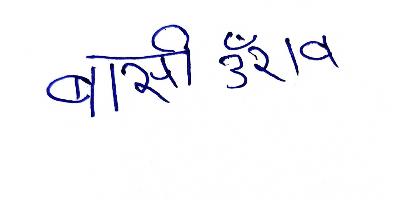 बासी उँराव